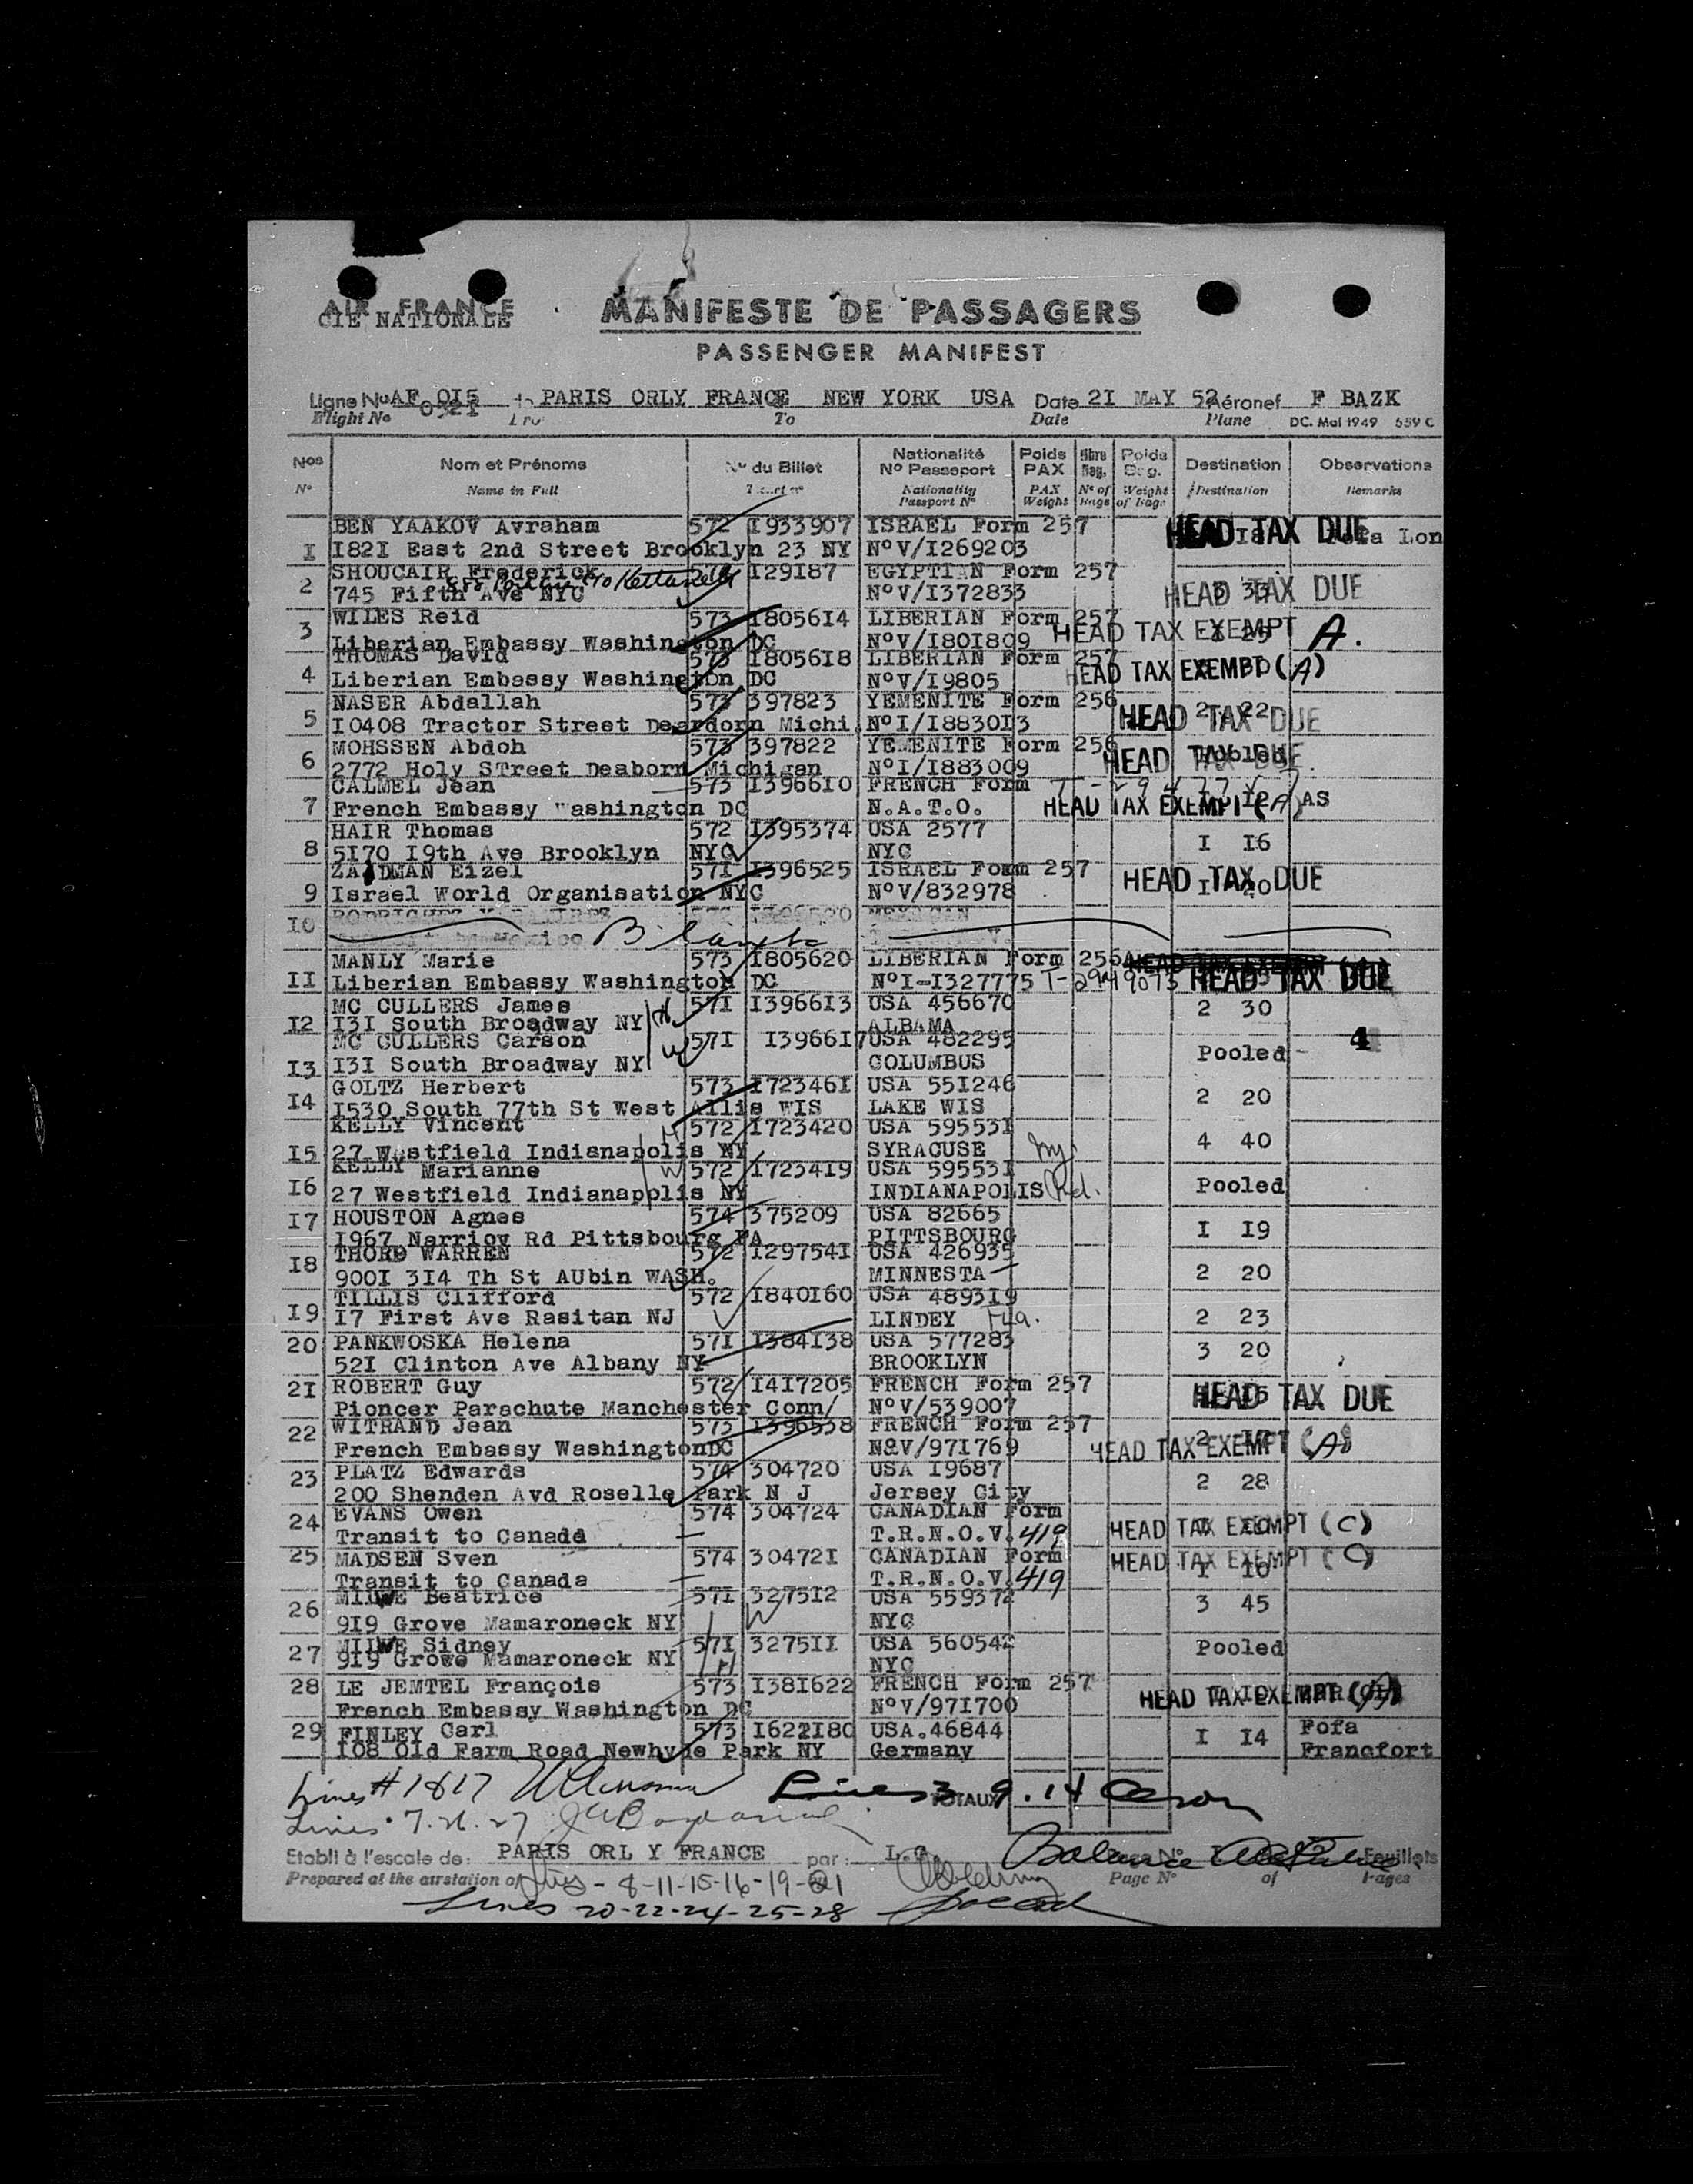 AIR FRANCE
CIE NATIONALE
MANIFESTE DE PASSAGERS
PASSENGER MANIFEST
Ligne No AF 0I5 PARIS ORLY FRANCE NEW YORK USA Date 2I MAY 52 Aéronef F BAZK
Flight No 032I To Date Plane DC. Mai 1949 559 C
Nos Nom et Prénoms No du Billet Nationalité No Passeport Poids PAX Nbre Bag. Poids Bag. Destination Observations
No Name in Full Nationality Passport No PAX Weight No of Bags Weight of Bags Destination Remarks
BEN YAAKOV Avraham 572 I933907 ISRAEL Form 257 HEAD TAX DUE Fofa Lon
I I82I East 2nd Street Brooklyn 23 NY NoV/I269203
SHOUCAIR Frederick I29I87 EGYPTIAN Form 257
2 745 Fifth Ave NYC NoV/I372833 HEAD TAX DUE
WILES Reid 573 I805614 LIBERIAN Form 257
3 Liberian Embassy Washington DC NoV/I80I809 HEAD TAX EXEMPT A.
THOMAS David 573 I8056I8 LIBERIAN Form 257
4 Liberian Embassy Washington DC NoV/I9805 HEAD TAX EXEMPT (A)
NASER Abdallah 573 397823 YEMENITE Form 256
5 I0408 Tractor Street Deardorn Michi. NoI/I8830I3 HEAD TAX DUE 2 22
MOHSSEN Abdoh 573 397822 YEMENITE Form 256
6 2772 Holy STreet Deaborn Michigan NoI/I883009 HEAD TAX DUE Pooled
CALMEL Jean 573 I3966I0 FRENCH Form
7 French Embassy Washington DC N.A.T.O. HEAD TAX EXEMPT (A) AS
HAIR Thomas 572 I395374 USA 2577
8 5I70 I9th Ave Brooklyn NYC NYC I I6
ZAIDMAN Eizel 57I I396525 ISRAEL Form 257
9 Israel World Organisation NYC NoV/832978 HEAD TAX DUE I 20
I0 MEXICAN
MANLY Marie 573 I805620 LIBERIAN Form 256A HEAD TAX EXEMPT
II Liberian Embassy Washington DC NoI-I327775 T-2949073 HEAD TAX DUE
MC CULLERS James 57I I3966I3 USA 456670
I2 I3I South Broadway NY H ALBAMA 2 30
MC CULLERS Carson 57I I3966I7 USA 482295
I3 I3I South Broadway NY W COLUMBUS Pooled 4
GOLTZ Herbert 573 I72346I USA 55I246
I4 I530 South 77th St West Allis WIS LAKE WIS 2 20
KELLY Vincent H 572 I723420 USA 59553I
I5 27 Westfield Indianapolis NY SYRACUSE NY. 4 40
KELLY Marianne W 572 I7234I9 USA 59553I
I6 27 Westfield Indianapplis NY INDIANAPOLIS Ind. Pooled
I7 HOUSTON Agnes 574 375209 USA 82665
I967 Narriov Rd Pittsbourg PA PITTSBOURG I I9
I8 THORD WARREN 572 I29754I USA 426935
900I 3I4 Th St AUbin WASH. MINNESTA 2 20
TILLIS Clifford 572 I840I60 USA 4893I9
I9 I7 First Ave Rasitan NJ LINDEY Fla. 2 23
20 PANKWOSKA Helena 57I I384I38 USA 577283
52I Clinton Ave Albany NY BROOKLYN 3 20
2I ROBERT Guy 572 I4I7205 FRENCH Form 257 HEAD TAX DUE
Pioncer Parachute Manchester Conn/ NoV/539007
22 WITRAND Jean 573 I396538 FRENCH Form 257
French Embassy WashingtonDC N&V/97I769 HEAD TAX EXEMPT (A)
23 PLATZ Edwards 574 304720 USA I9687
200 Shenden Avd Roselle Park N J Jersey City 2 28
24 EVANS Owen 574 304724 CANADIAN Form
Transit to Canada T.R.N.O.V. 419 HEAD TAX EXEMPT (C)
25 MADSEN Sven 574 30472I CANADIAN Form HEAD TAX EXEMPT (C)
Transit to Canada T.R.N.O.V. 419 I I0
26 MILWE Beatrice 57I 3275I2 USA 559372
919 Grove Mamaroneck NY W NYC 3 45
27 MILWE Sidney 57I 3275II USA 560542
919 Growe Mamaroneck NY H NYC Pooled
28 LE JEMTEL François 573 I38I622 FRENCH Form 257
French Embassy Washington DC NoV/97I700 HEAD TAX EXEMPT (A)
29 FINLEY Carl 573 I622I80 USA.46844 I I4 Fofa
I08 Old Farm Road Newhyde Park NY Germany Francfort
Lines # 1817 Lines 3 9.14
TOTAUX
Lines 7.26.27
Etabli à l'escale de: PARIS ORL Y FRANCE par: L.C. Balance Feuillets
Prepared at the airstation of Lines - 8-11-15-16-19-21 Page No of Pages
Lines 20-22-24-25-28